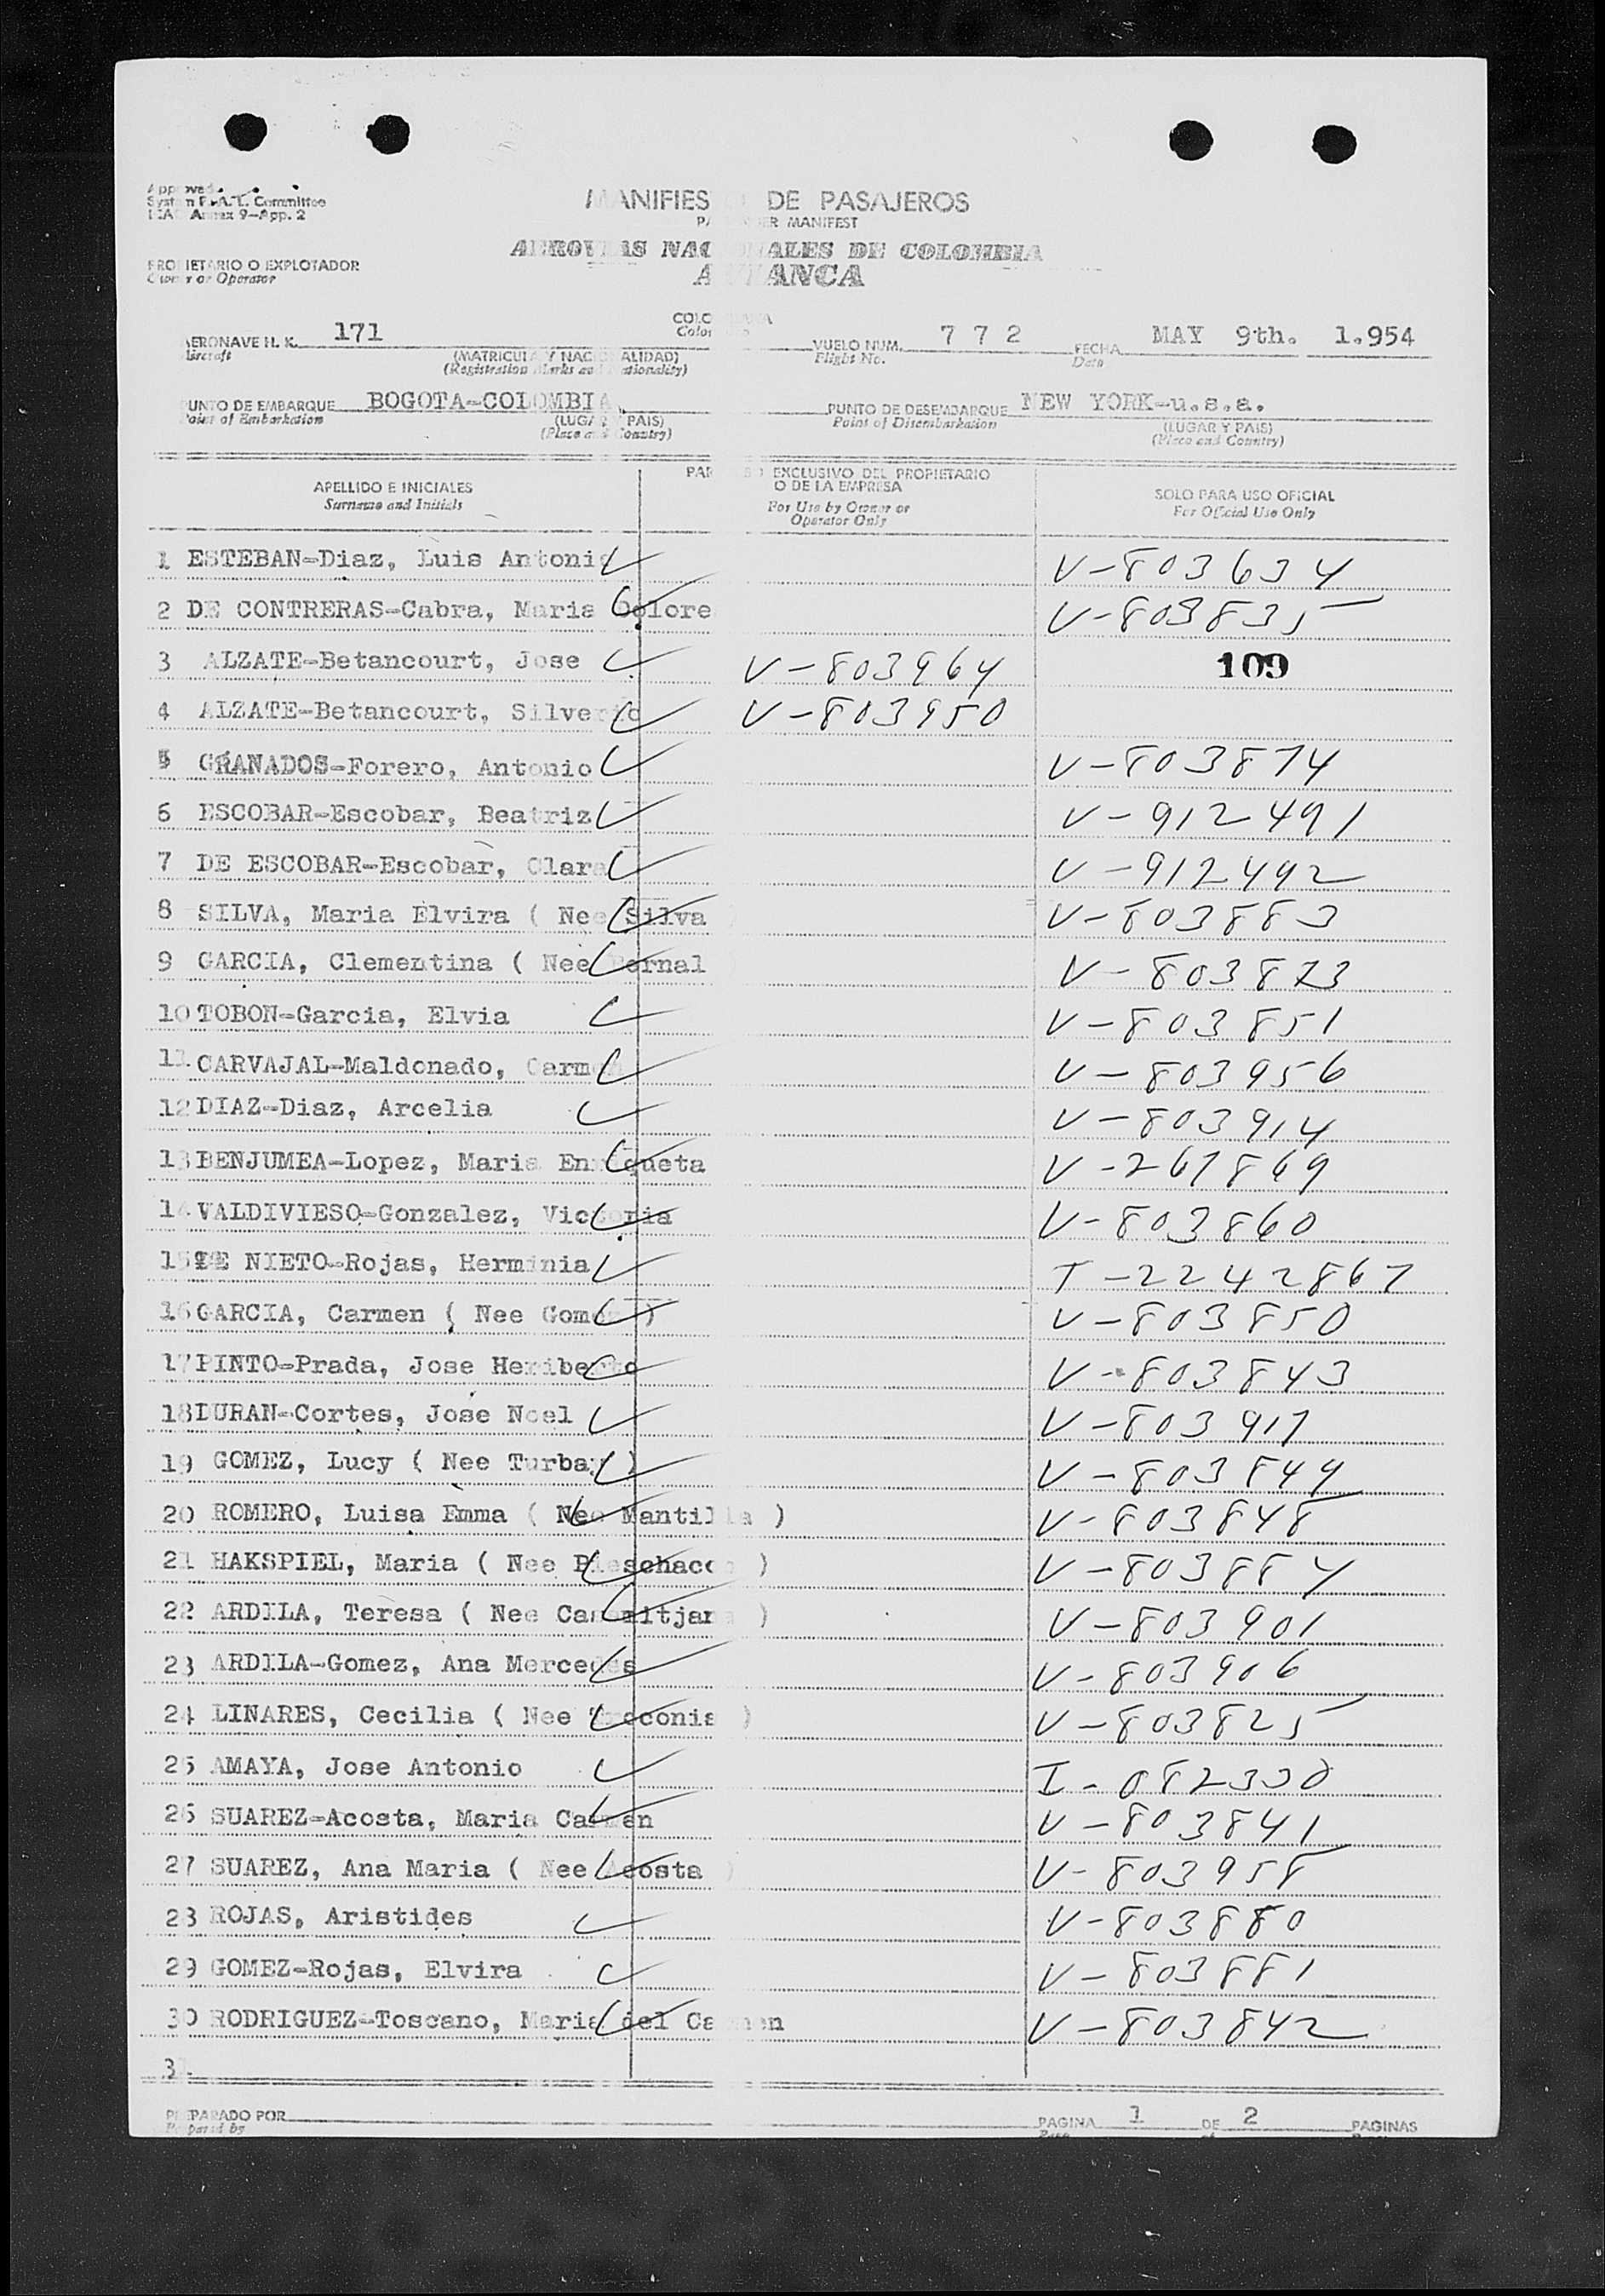 Approved
System F.A.L. Committee
ICAO Annex 9-App. 2
MANIFIESTO DE PASAJEROS
PASSENGER MANIFEST
AEROVIAS NACIONALES DE COLOMBIA
AVIANCA
PROPIETARIO O EXPLOTADOR
Owner or Operator
AERONAVE H. K. 171 COLOMBIANA VUELO NUM. 7 7 2 FECHA MAY 9th. 1.954
Aircraft (MATRICULA Y NACIONALIDAD) Flight No. Date
(Registration Marks and Nationality)
PUNTO DE EMBARQUE BOGOTA-COLOMBIA, PUNTO DE DESEMBARQUE NEW YORK-u.s.a.
Point of Embarkation (LUGAR Y PAIS) Point of Disembarkation (LUGAR Y PAIS)
(Place and Country) (Place and Country)
APELLIDO E INICIALES PARA USO EXCLUSIVO DEL PROPIETARIO O DE LA EMPRESA SOLO PARA USO OFICIAL
Surname and Initials For Use by Owner or Operator Only For Official Use Only
1 ESTEBAN-Diaz, Luis Antonio V-803634
2 DE CONTRERAS-Cabra, Maria Dolore V-803835
3 ALZATE-Betancourt, Jose V-803964 109
4 ALZATE-Betancourt, Silverio V-803950
5 GRANADOS-Forero, Antonio V-803874
6 ESCOBAR-Escobar, Beatriz V-912491
7 DE ESCOBAR-Escobar, Clara V-912492
8 SILVA, Maria Elvira ( Nee Silva ) V-803883
9 GARCIA, Clementina ( Nee Bernal V-803873
10 TOBON-Garcia, Elvia V-803851
11 CARVAJAL-Maldonado, Carmen V-803956
12 DIAZ-Diaz, Arcelia V-803914
13 BENJUMEA-Lopez, Maria Enriqueta V-267869
14 VALDIVIESO-Gonzalez, Victoria V-803860
15 DE NIETO-Rojas, Herminia T-2242867
16 GARCIA, Carmen ( Nee Gomez ) V-803850
17 PINTO-Prada, Jose Heriberto V-803843
18 DURAN-Cortes, Jose Noel V-803917
19 GOMEZ, Lucy ( Nee Turbay ) V-803849
20 ROMERO, Luisa Emma ( Nee Mantilla ) V-803848
21 HAKSPIEL, Maria ( Nee Pleschacoo ) V-803884
22 ARDILA, Teresa ( Nee ) V-803901
23 ARDILA-Gomez, Ana Mercedes V-803906
24 LINARES, Cecilia ( Nee Troconis ) V-803825
25 AMAYA, Jose Antonio I-082330
26 SUAREZ-Acosta, Maria Carmen V-803841
27 SUAREZ, Ana Maria ( Nee Acosta ) V-803958
28 ROJAS, Aristides V-803880
29 GOMEZ-Rojas, Elvira V-803881
30 RODRIGUEZ-Toscano, Maria del Carmen V-803842
31.
PREPARADO POR PAGINA 1 DE 2 PAGINAS
Prepared by